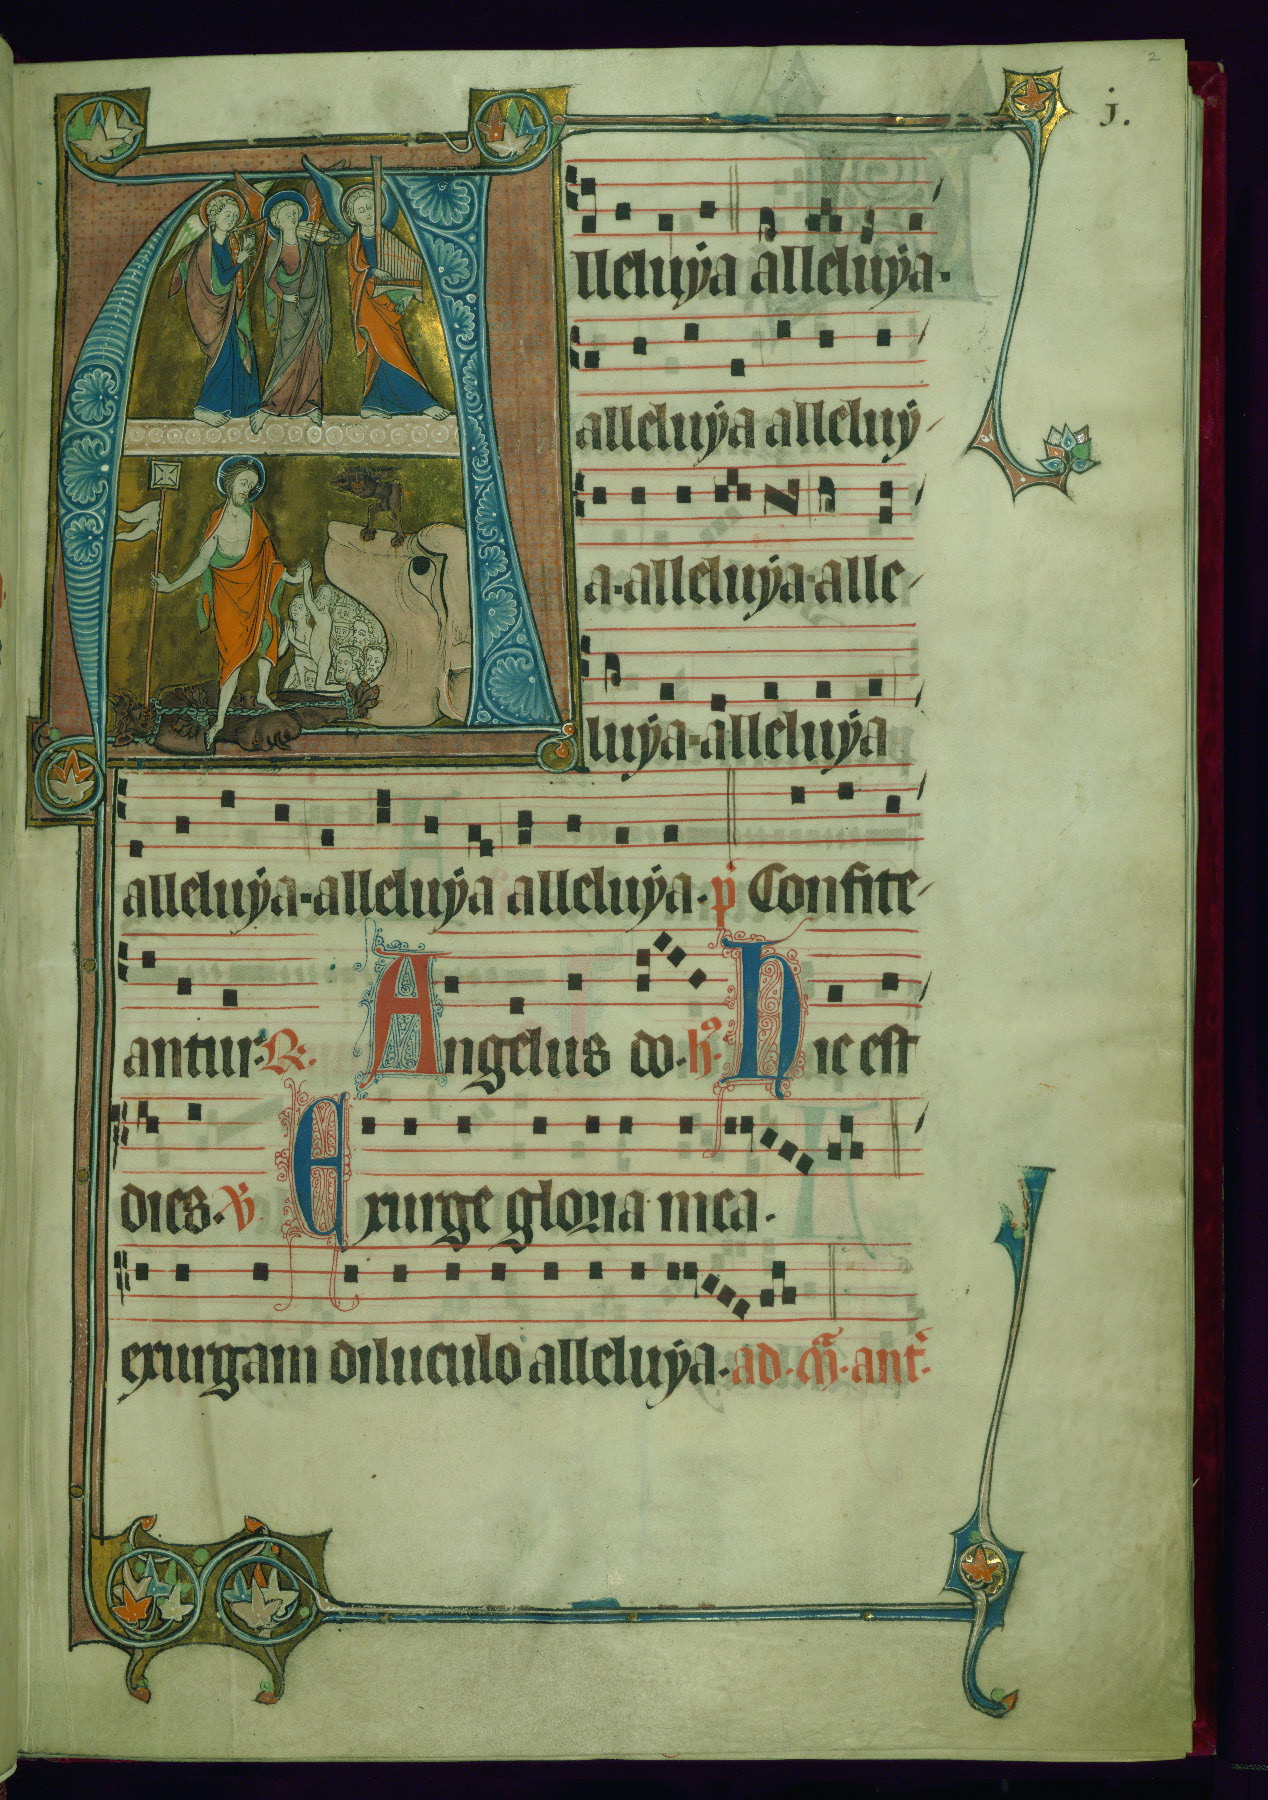 2
j.
Alleluÿa alleluÿa.
alleluÿa alleluÿ
a. alleluÿa. alle
luÿa. alleluÿa
alleluÿa. alleluÿa alleluÿa. p̃ Confite
antur. R. Angelus do. h̾. Hic est
dies. V̾ Exurge gloria mea.
exurgam diluculo alleluÿa. ad. m̃. ant̃.